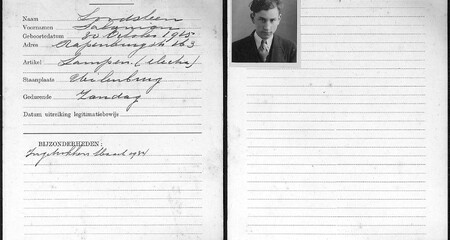 Naam Loodsteen
Voornamen Salomon
Geboortedatum 30 October 1915
Adres Rapenburgstr 63
Artikel Lampen (electra)
Staanplaats Uilenburg
Gedurende Zondag
Datum uitreiking legitimatiebewijs
BIJZONDERHEDEN:
Ingetrokken Maart 1934